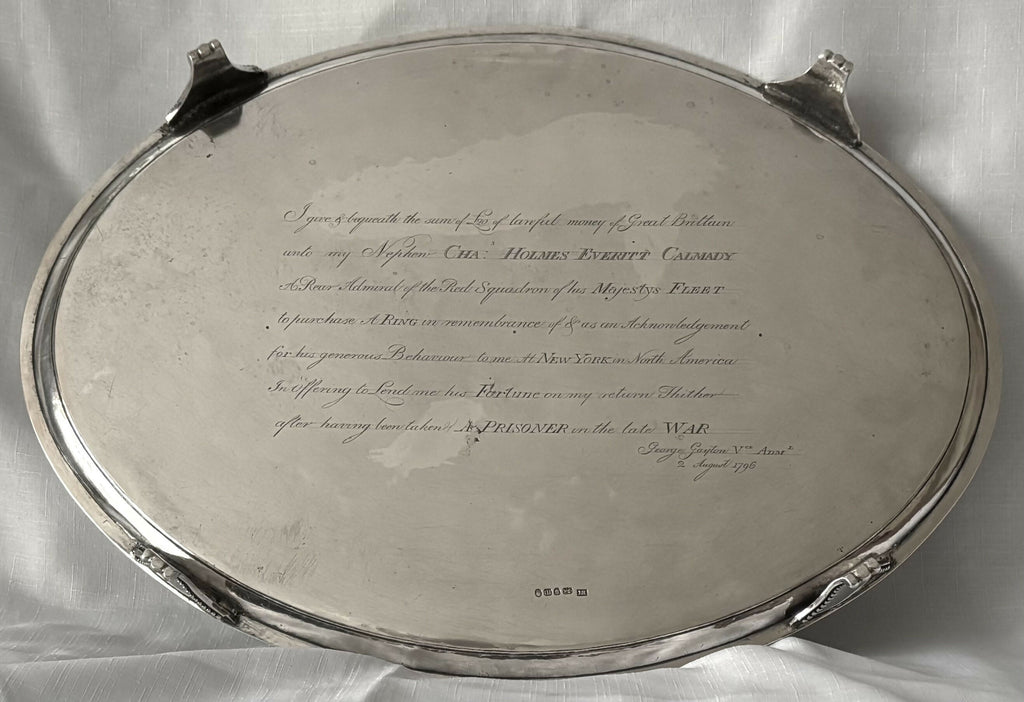 I give & bequeath the sum of £20. of lawful money of Great Brittain
unto my Nephew CHAS. HOLMES EVERITT CALMADY
A Rear Admiral of the Red Squadron of his MAJESTYS FLEET
to purchase A RING in remembrance of & as an Acknowledgement
for his generous Behaviour to me At NEW YORK in North America
In Offering to Lend me his FORTUNE on my return Thither
after having been taken A PRISONER in the late WAR
George Gayton Vce ADML
2 August 1796